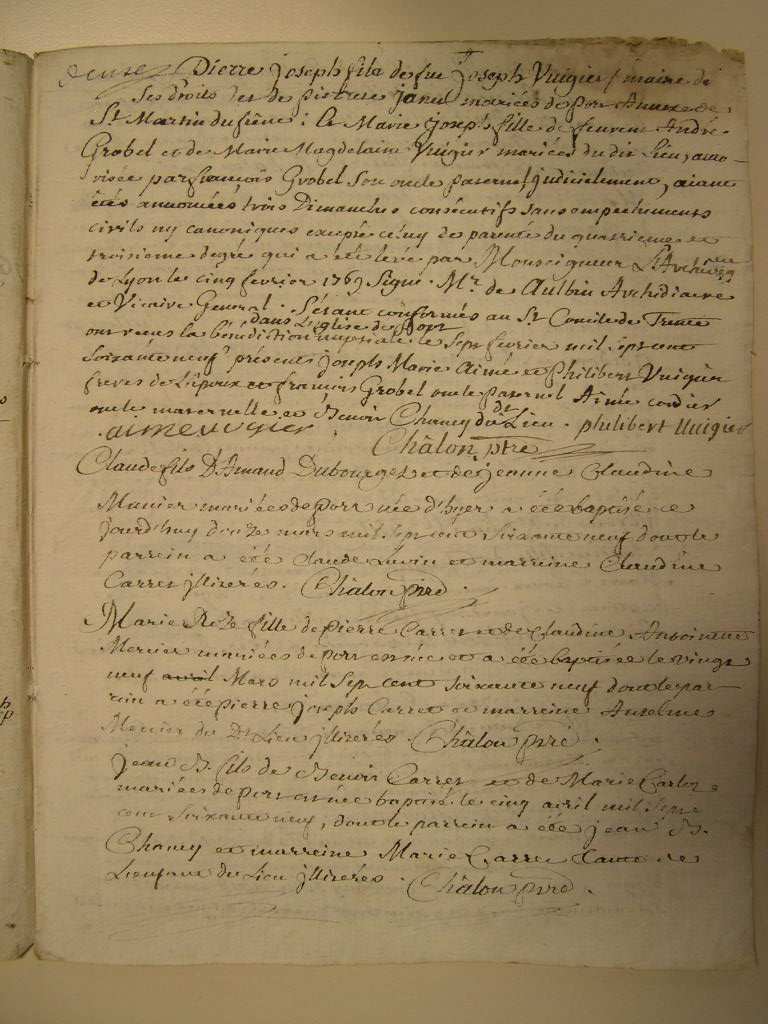 Pierre joseph fils de feu joseph Vuigier / maire de
Ses droits et de pierrete mariées de por Annexe de
St Martin du frêne : Et Marie joseph fille de feu André
Grobel et de Marie Magdelaine Vuigier mariées du dit Lieu, auto-
risée par françois Grobel Son oncle paternel judiciellement, aiant
êtés annoncées trois Dimanches consécutifs sans empechements
civils ny canoniques excepté celuy de parenté du quatrieme et
troisieme degré qui a été levé par Monseigneur L'Archevêq
de Lyon le cinq fevrier 1769 Signé Mr. de Aulbin Archidiacre
et Vicaire General. S'étant conformés au St Concile de Trente
dans L'église de Port
ont reçus la bénédiction nuptiale le Sept fevrier mil Sept cent
Soixante neuf présents joseph Marie Aimé et Philibert Vuigier
freres de L'époux et françois Grobel oncle paternel Aimé cordier
oncle maternelle et Benoit Chaney du dt Lieu. philibert Vuigier
aime vugier
Châlon ptre
Claude fils D'Amand Dubourget et de jeanne Claudine
Munier mariées de port née d'hyer a été baptisé ce
jourd'huy douze mars mil Sept cent soixante neuf dont le
parrein a été claude et marreine Claudine
Carret jllitérés. Châlon ptre.
Marie Roze fille de pierre Carret et de Claudine Antoinette
Mercier mariées de port est née et a été baptisée le vingt
neuf avril Mars mil Sept cent soixante neuf dont le par-
rein a été pierre joseph Carret et marreine Anselme
Mercier du Dt Lieu jllitérés. Châlon ptre.
jean B. fils de Benoit Carret et de Marie
mariées de port est née baptisé le cinq avril mil Sept
cent Soixante neuf, dont le parrein a été jean B.
Chaney et marreine Marie Carret tante de
L'enfant du Lieu jllitérés. Châlon ptre.